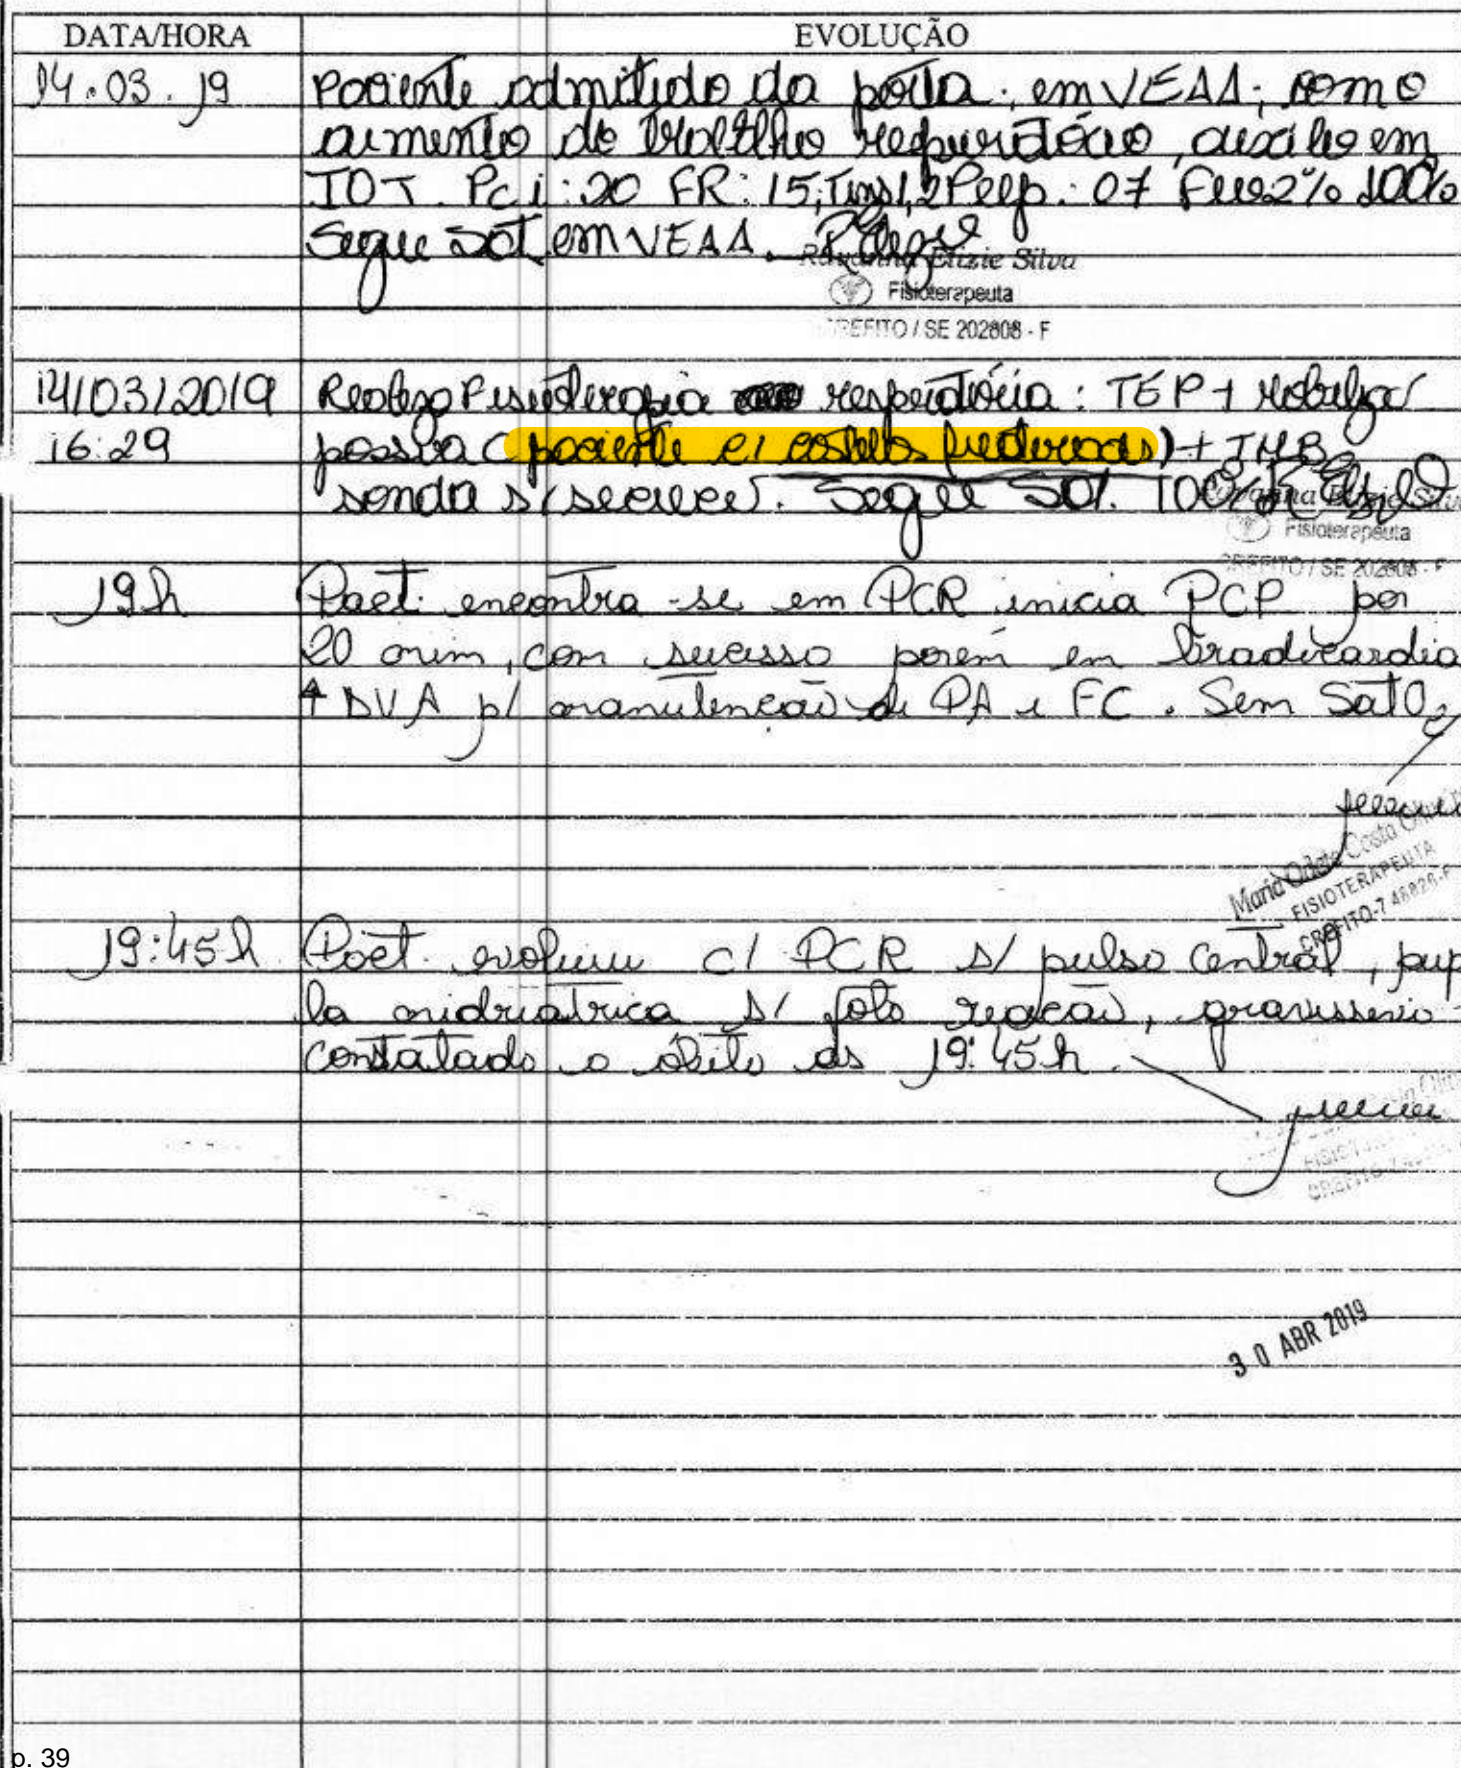 DATA/HORA EVOLUÇÃO
14.03.19 Paciente admitido da porta, em VEAA; como
aumento do trabalho respiratório, auxilio em
TOT. Pci: 20 FR: 15; Tins 1,2 Peep: 07 100%
Segue em VEAA.
Elizie Silva
Fisioterapeuta
CREFITO / SE 202808 - F
14/03/2019 Realizo Fisioterapia respiratória: TEP +
16:29 passiva (paciente c/ costelas fraturadas) + TMB
sonda s/ secreção. Segue 100%
Elizie Silva
Fisioterapeuta
CREFITO / SE 202808 - F
19h Pact. encontra-se em PCR inicia PCP por
20 min, com sucesso porém em bradicardia
DVA p/ manutenção de PA e FC. Sem SatO2
Maria Odete Costa
FISIOTERAPEUTA
CREFITO-7
19:45h Pact. evoluiu c/ PCR s/ pulso central, pup
la midriatrica s/ foto reação, gravissimo
constatado o óbito as 19:45h.
30 ABR 2019
p. 39